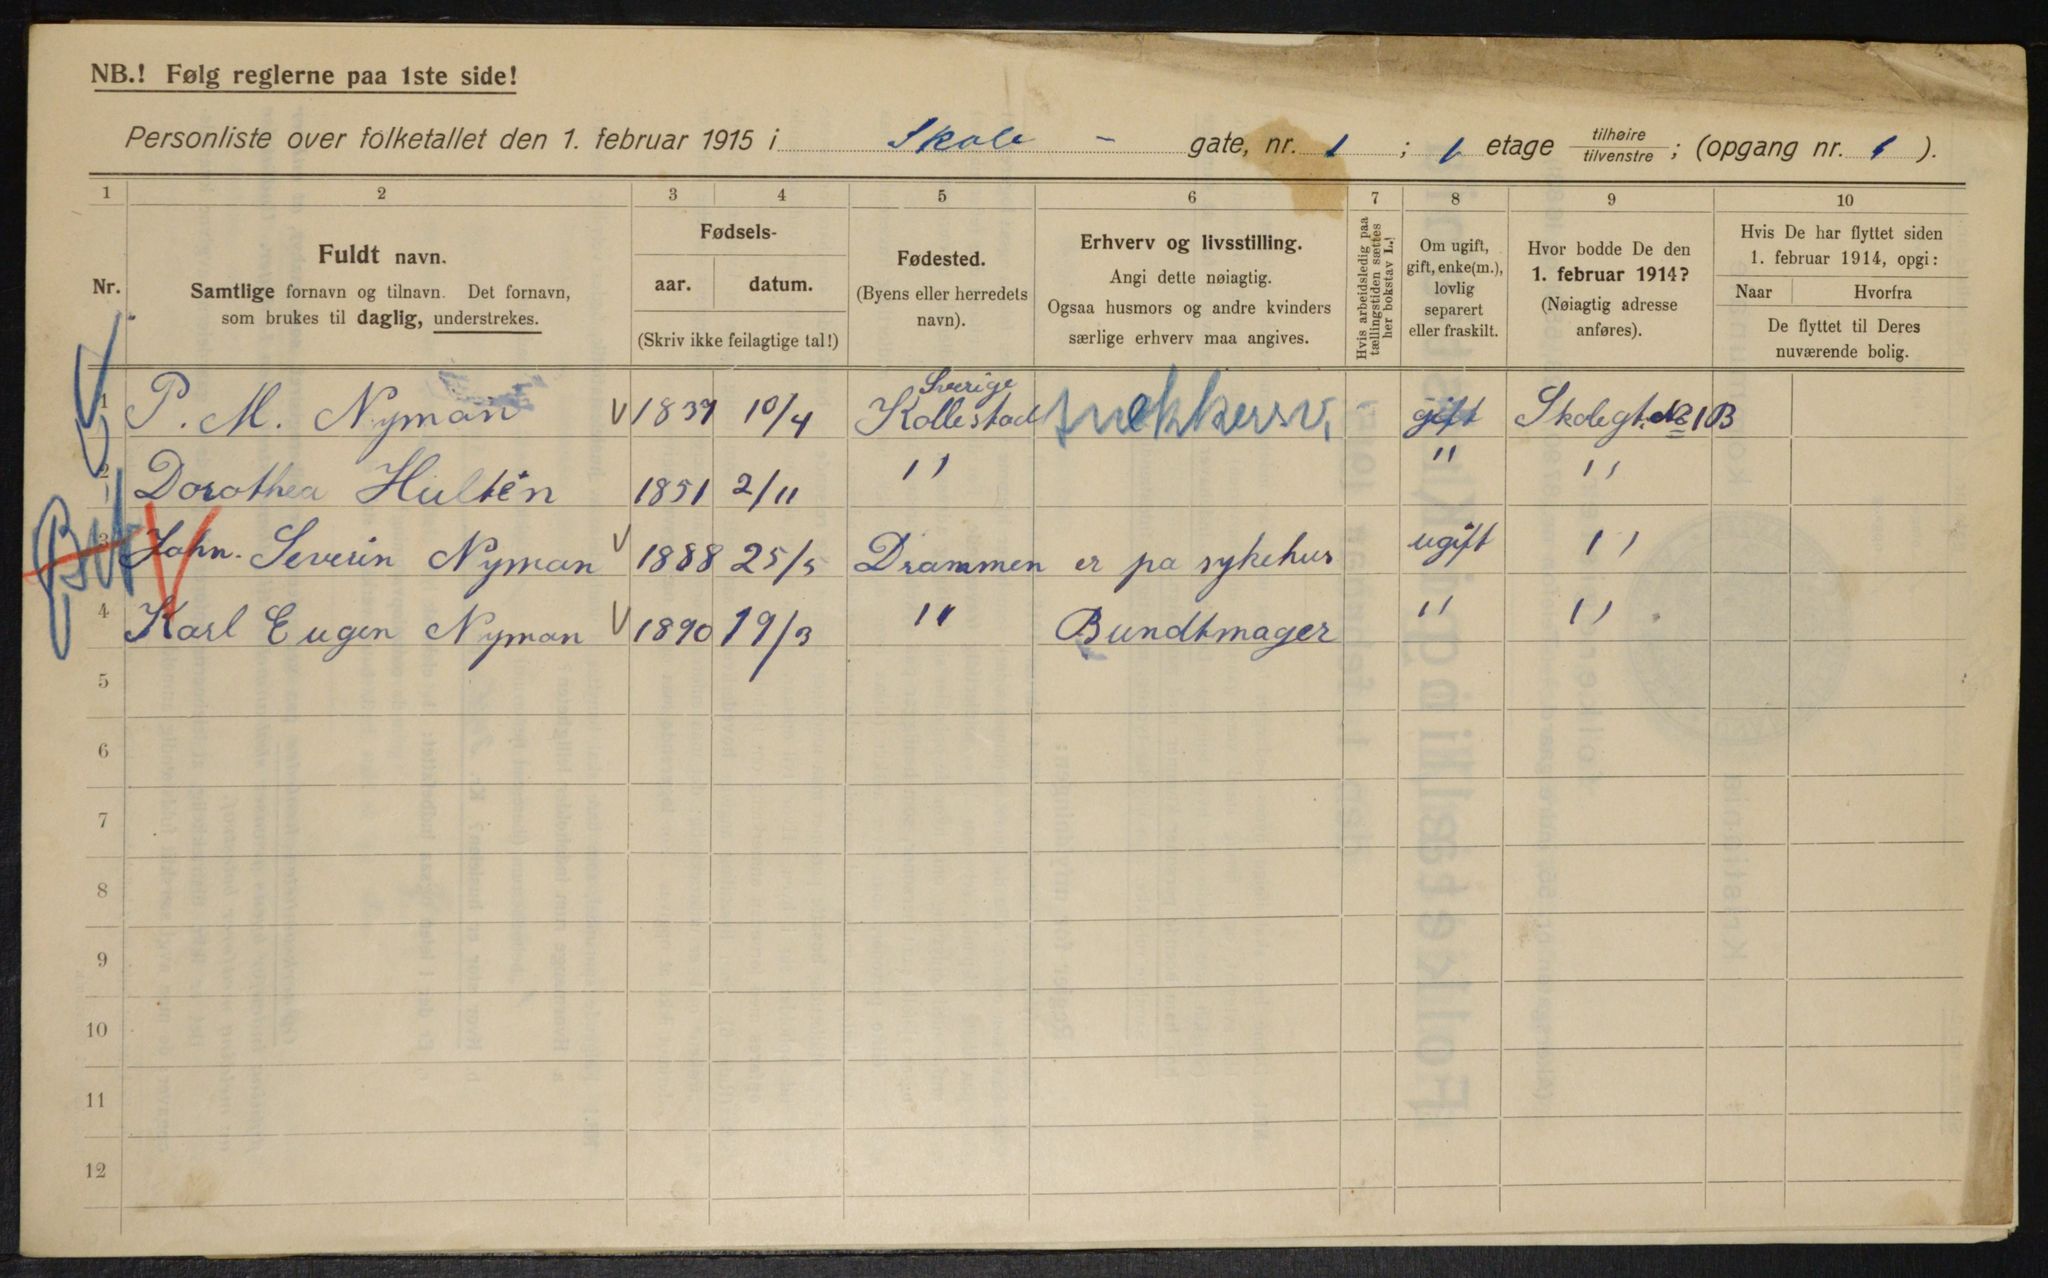 NB.! Følg reglerne paa 1ste side!
Personliste over folketallet den 1. februar 1915 i Skole - gate, nr. 1 ; 1 etage tilhøire tilvenstre ; (opgang nr. 1 ).
1 2 3 4 5 6 7 8 9 10
Nr.
Fuldt navn.
Samtlige fornavn og tilnavn. Det fornavn,
som brukes til daglig, understrekes.
Fødsels-
aar. datum.
(Skriv ikke feilagtige tal!)
Fødested.
(Byens eller herredets
navn).
Erhverv og livsstilling.
Angi dette nøiagtig.
Ogsaa husmors og andre kvinders
særlige erhverv maa angives.
Hvis arbeidsledig paa
tællingstiden sættes
her bokstav L.!
Om ugift,
gift, enke(m.),
lovlig
separert
eller fraskilt.
Hvor bodde De den
1. februar 1914?
(Nøiagtig adresse
anføres).
Hvis De har flyttet siden
1. februar 1914, opgi:
Naar Hvorfra
De flyttet til Deres
nuværende bolig.
Sverige
1 P. M. Nyman V 1837 10/4 Kollestad snekkersv. gift Skolegt. No 1B
2 Dorothea Hultén 1851 2/11 " " "
3 John. Severin Nyman V 1888 25/5 Drammen er pa sykehus ugift "
4 Karl Eugen Nyman V 1890 19/3 " Bundtmager " "
5
6
7
8
9
10
11
12